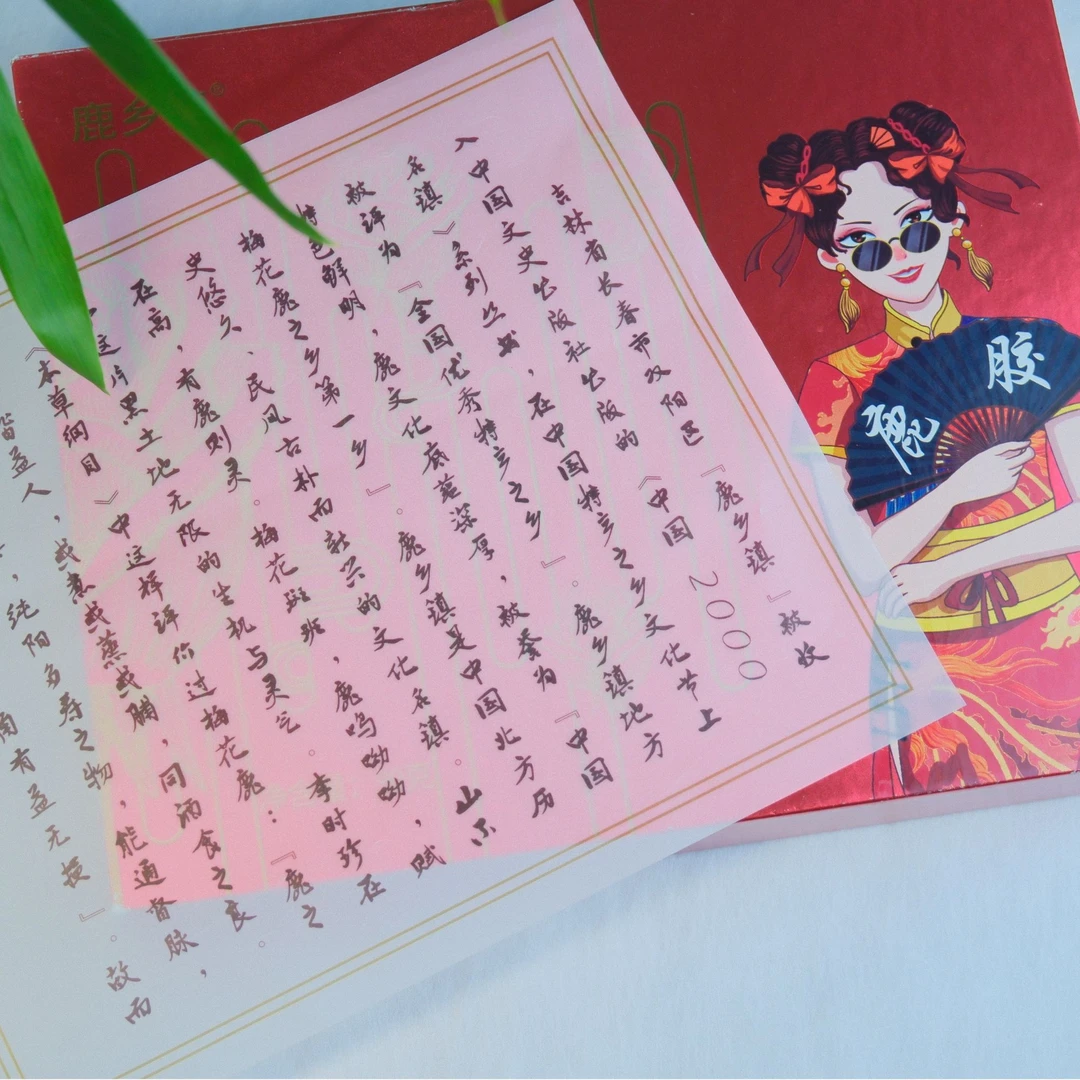 鹿乡
吉林省长春市双阳区『鹿乡镇』被收
入中国文史出版社出版的《中国2000
名镇》系列丛书,在中国特产之乡文化节上
被评为『全国优秀特产之乡』。鹿乡镇地方
特色鲜明,鹿文化底蕴深厚,被誉为『中国
梅花鹿之乡第一乡』。鹿乡镇是中国北方历
史悠久、民风古朴而新兴的文化名镇。山不
在高,有鹿则灵。梅花斑斑,鹿鸣呦呦,赋
这片黑土地无限的生机与灵气。李时珍在
《本草纲目》中这样评价过梅花鹿:『鹿之
皆益人,或煮或蒸或脯,同酒食之良。
,纯阳多寿之物,能通督脉,
有益无损』。故而
鹿胶